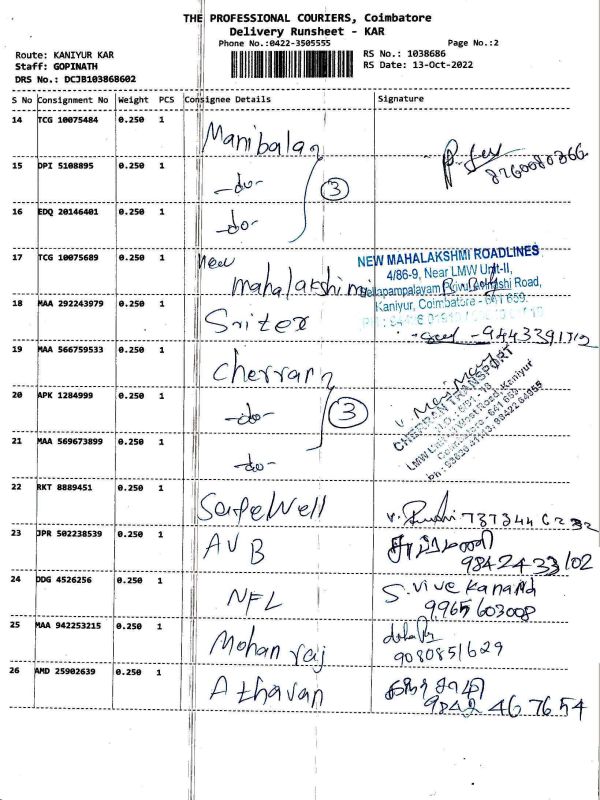 THE PROFESSIONAL COURIERS, Coimbatore
Delivery Runsheet - KAR
Phone No.:0422-3505555 Page No.:2
Route: KANIYUR KAR RS No.: 1038686
Staff: GOPINATH RS Date: 13-Oct-2022
DRS No.: DCJB103868602
S No Consignment No Weight PCS Consignee Details Signature
14 TCG 10075484 0.250 1 Manibalan
8760080366
15 DPI 5108895 0.250 1 -do- 3
16 EDQ 20146401 0.250 1 -do-
17 TCG 10075689 0.250 1 New mahalakshmi
NEW MAHALAKSHMI ROADLINES
4/86-9, Near LMW Unit-II,
Road,
Kaniyur, Coimbatore - 641 659.
18 MAA 292243979 0.250 1 Sritex
9443391712
19 MAA 566759533 0.250 1 Cherran
20 APK 1284999 0.250 1 -do- 3
CHERRAN TRANSPORT
LMW Unit II West Road, Kaniyur
Coimbatore - 641 659
21 MAA 569673899 0.250 1 -do-
22 RKT 8889451 0.250 1 SafeWell
23 JPR 502238539 0.250 1 AVB
9842433102
24 DDG 4526256 0.250 1 NFL S. Vivekanand
9965603008
25 MAA 942253215 0.250 1 Mohan raj
9080851629
26 AMD 25902639 0.250 1 Athavan
9842467654